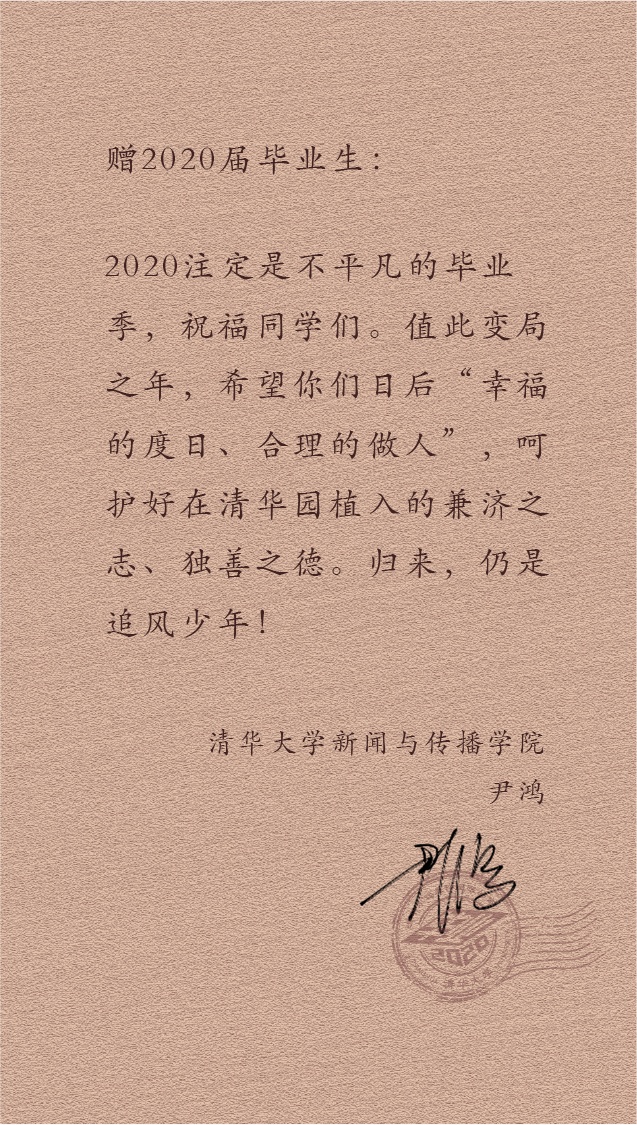 赠2020届毕业生：
2020注定是不平凡的毕业
季，祝福同学们。值此变局
之年，希望你们日后“幸福
的度日、合理的做人”，呵
护好在清华园植入的兼济之
志、独善之德。归来，仍是
追风少年！
清华大学新闻与传播学院
尹鸿
尹鸿
2020
清华大学